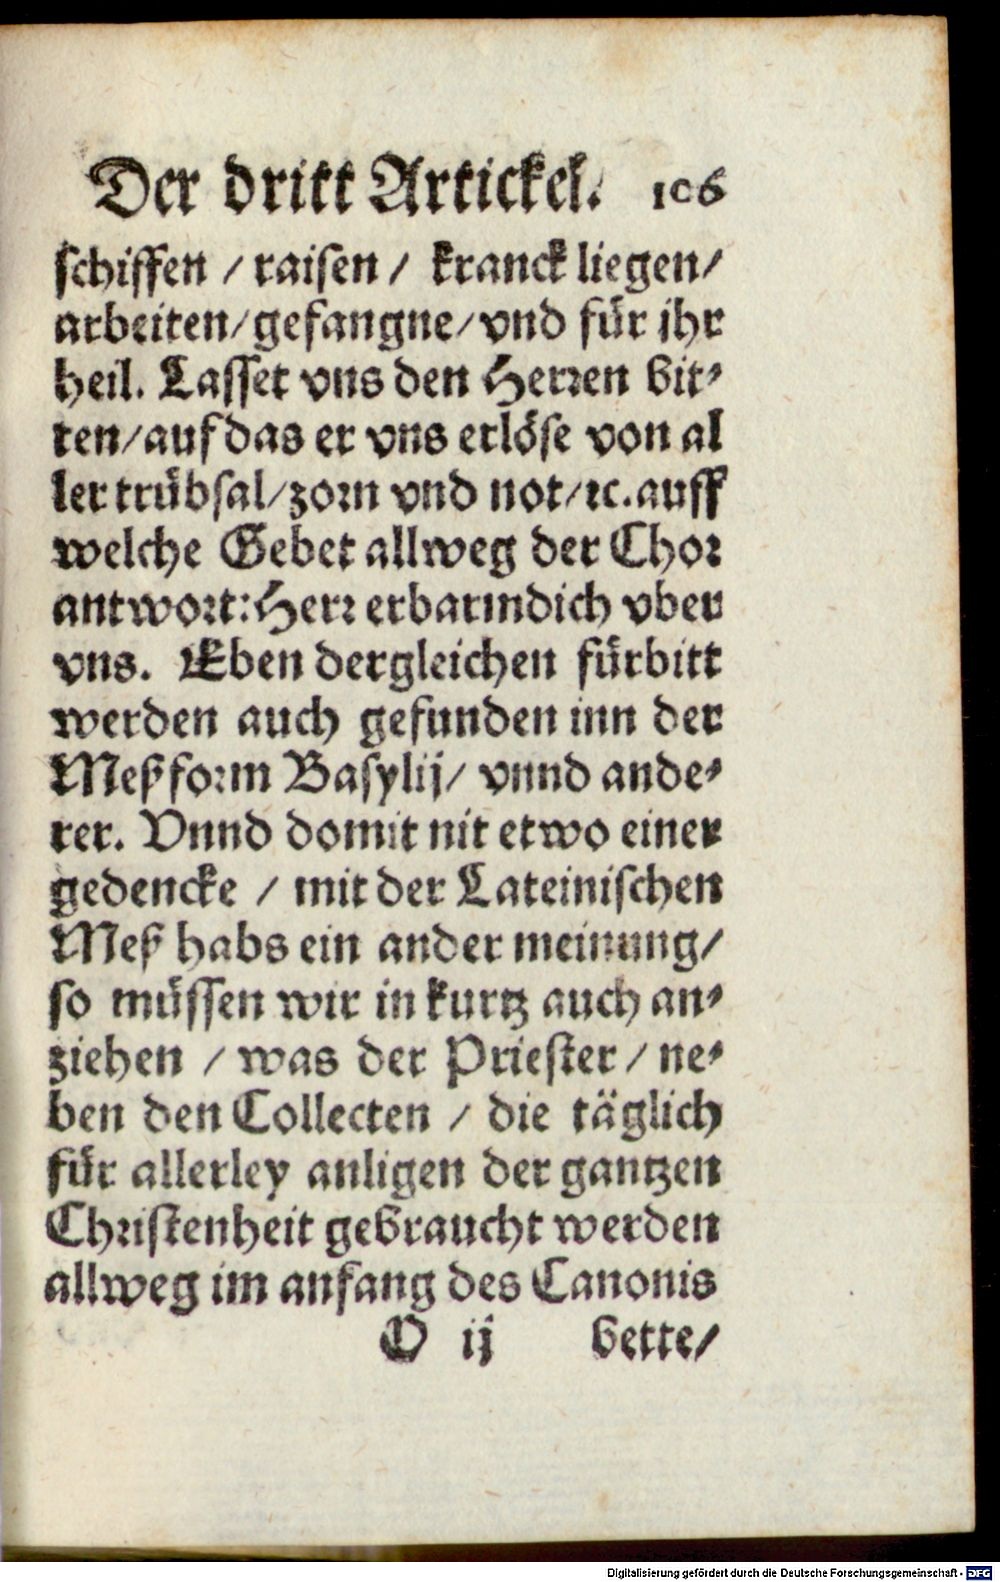 Der dritt Artickel. 106
schiffen / raisen / kranck liegen/
arbeiten/gefangne/vnd für jhr
heil. Lasset vns den Herren bit-
ten/auf das er vns erlöse von al
ler trübsal/zorn vnd not/ꝛc.auff
welche Gebet allweg der Chor
antwort: Herr erbarm dich vber
vns. Eben dergleichen fürbitt
werden auch gefunden inn der
Meßform Basylij/ vnnd ande-
rer. Vnnd domit nit etwo einer
gedencke / mit der Lateinischen
Meß habs ein ander meinung/
so müssen wir in kurtz auch an-
ziehen / was der Priester / ne-
ben den Collecten / die täglich
für allerley anligen der gantzen
Christenheit gebraucht werden
allweg im anfang des Canonis
O ij bette/
Digitalisierung gefördert durch die Deutsche Forschungsgemeinschaft - DFG